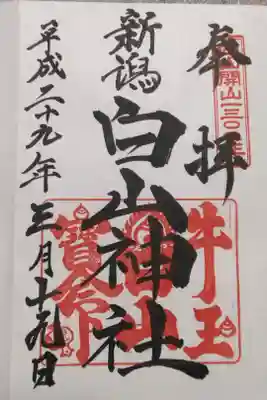 奉拝
開山一三〇〇年
新潟
白山神社
牛王
寶命
平成二十九年三月十九日